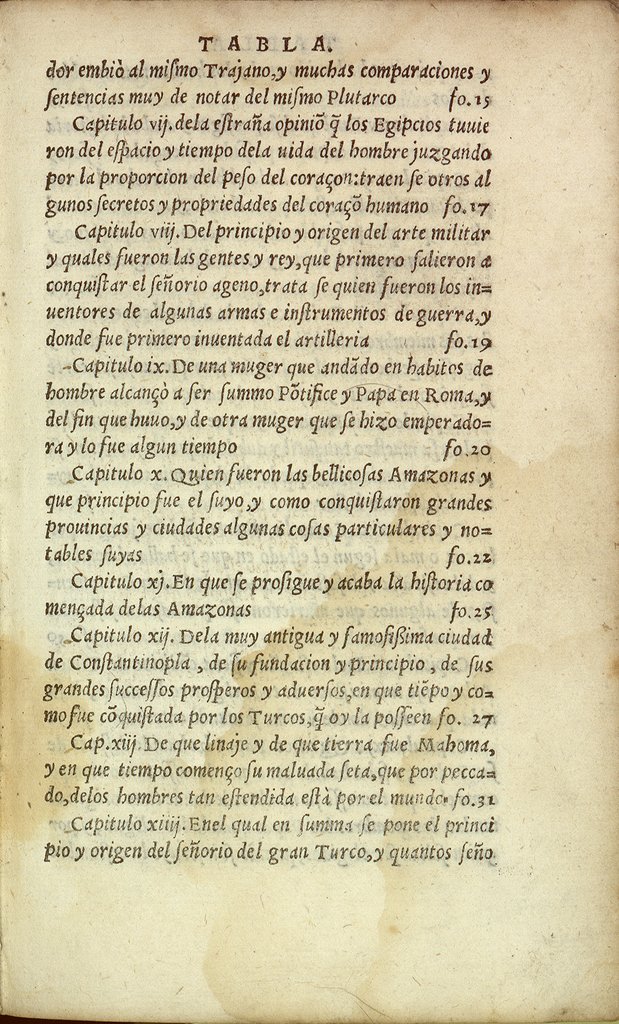 TABLA.
dor embiò al miſmo Trajano,y muchas comparaciones y
ſentencias muy de notar del miſmo Plutarco fo.15
Capitulo vij.dela eſtraña opiniõ q̃ los Egipcios tuuie
ron del eſpacio y tiempo dela uida del hombre juzgando
por la proporcion del peſo del coraçon:traen ſe otros al
gunos ſecretos y propriedades del coraçõ humano fo.17
Capitulo viij.Del principio y origen del arte militar
y quales fueron las gentes y rey,que primero ſalieron a
conquiſtar el ſeñorio ageno,trata ſe quien fueron los in=
uentores de algunas armas e inſtrumentos de guerra,y
donde fue primero inuentada el artilleria fo.19
Capitulo ix.De una muger que andãdo en habitos de
hombre alcançò a ſer ſummo Põtifice y Papa en Roma,y
del fin que huuo,y de otra muger que ſe hizo emperado=
ra y lo fue algun tiempo fo.20
Capitulo x.Quien fueron las bellicoſas Amazonas y
que principio fue el ſuyo,y como conquiſtaron grandes
prouincias y ciudades algunas coſas particulares y no=
tables ſuyas fo.22
Capitulo xj.En que ſe proſigue y acaba la hiſtoria co
mençada delas Amazonas fo.25
Capitulo xij. Dela muy antigua y famoſißima ciudad
de Conſtantinopla , de ſu fundacion y principio , de sus
grandes ſucceſſos proſperos y aduerſos,en que tiẽpo y co=
mo fue cõquiſtada por los Turcos,q̃ oy la poſſeen fo. 27
Cap.xiij.De que linaje y de que tierra fue Mahoma,
y en que tiempo començo ſu maluada ſeta,que por pecca=
do,delos hombres tan eſtendida eſtà por el mundo. fo.31
Capitulo xiiij.Enel qual en ſumma ſe pone el princi
pio y origen del ſeñorio del gran Turco,y quantos ſeño